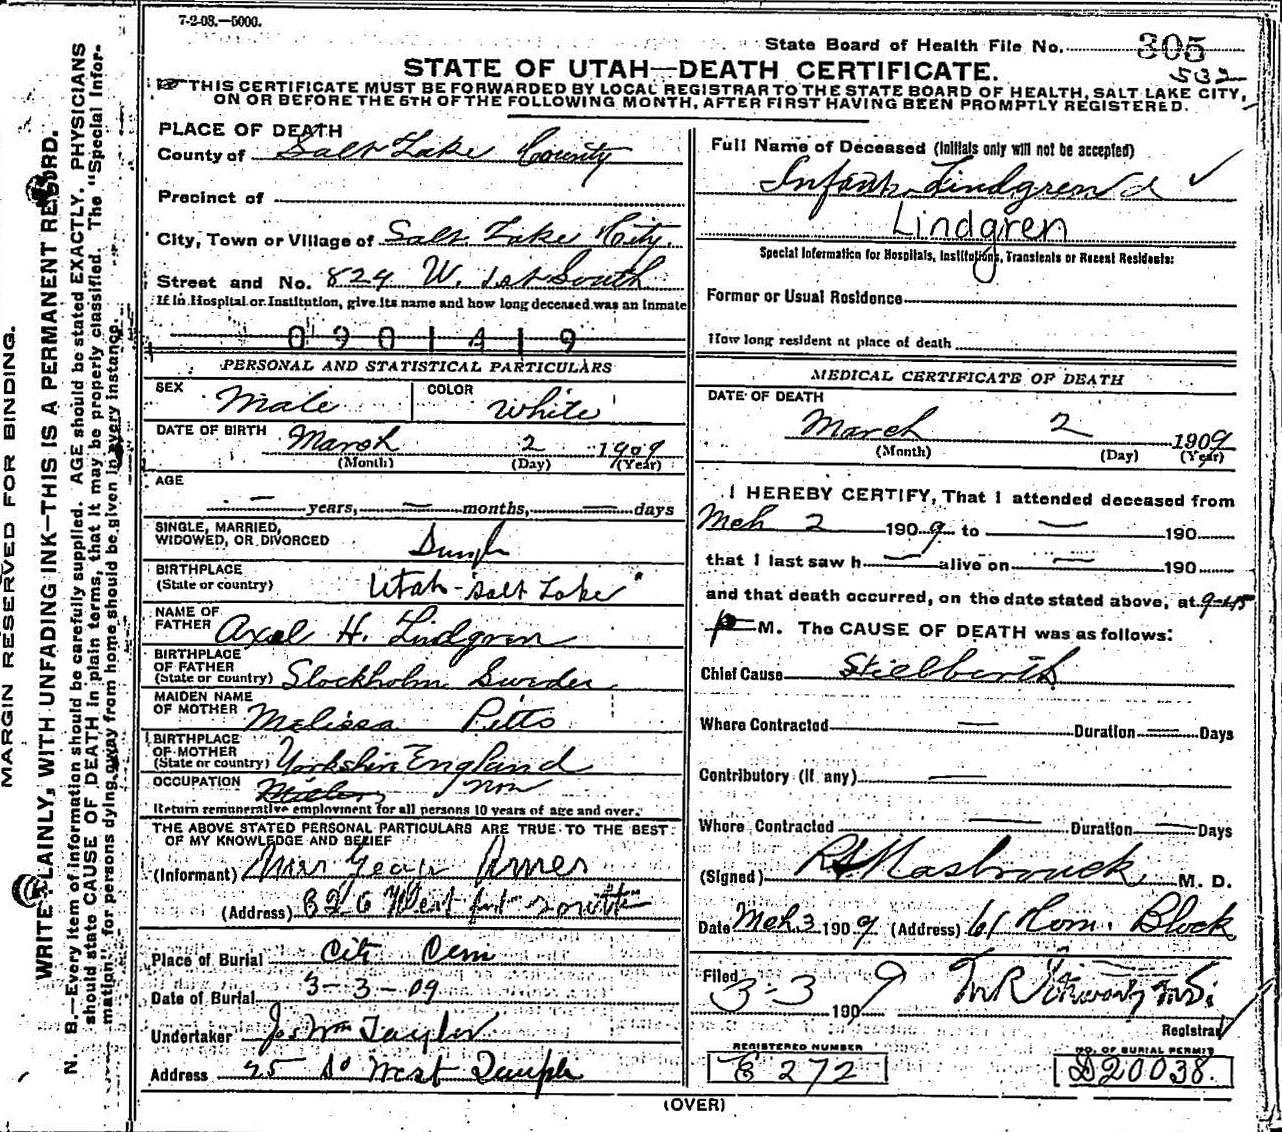 7-2-08.—5000.
State Board of Health File No. 305
532
STATE OF UTAH—DEATH CERTIFICATE.
THIS CERTIFICATE MUST BE FORWARDED BY LOCAL REGISTRAR TO THE STATE BOARD OF HEALTH, SALT LAKE CITY,
ON OR BEFORE THE 5TH OF THE FOLLOWING MONTH, AFTER FIRST HAVING BEEN PROMPTLY REGISTERED.
MARGIN RESERVED FOR BINDING.
WRITE PLAINLY, WITH UNFADING INK—THIS IS A PERMANENT RECORD.
N. B.—Every item of information should be carefully supplied. AGE should be stated EXACTLY. PHYSICIANS
should state CAUSE OF DEATH in plain terms, that it may be properly classified. The "Special Infor-
mation" for persons dying away from home should be given in every instance.
PLACE OF DEATH
County of Salt Lake County
Precinct of
City, Town or Village of Salt Lake City.
Street and No. 824 W. 1st South
If in Hospital or Institution, give its name and how long deceased was an inmate
0 9 0 1 4 1 9
PERSONAL AND STATISTICAL PARTICULARS
SEX Male COLOR White
DATE OF BIRTH March 2 1909
(Month) (Day) (Year)
AGE
— years, — months, — days
SINGLE, MARRIED,
WIDOWED, OR DIVORCED Single
BIRTHPLACE
(State or country) Utah - Salt Lake "
NAME OF
FATHER Axel H. Lindgren
BIRTHPLACE
OF FATHER
(State or country) Stockholm Sweden
MAIDEN NAME
OF MOTHER Melissa Pitts
BIRTHPLACE
OF MOTHER
(State or country) Yorkshire England
OCCUPATION non
Return remunerative employment for all persons 10 years of age and over.
THE ABOVE STATED PERSONAL PARTICULARS ARE TRUE TO THE BEST
OF MY KNOWLEDGE AND BELIEF
(Informant) Ames
(Address) 826 West first south
Place of Burial City Cem
Date of Burial 3-3-09
Undertaker Jos Wm Taylor
Address 25 So West Temple
Full Name of Deceased (Initials only will not be accepted)
Infant Lindgren
Lindgren
Special Information for Hospitals, Institutions, Transients or Recent Residents:
Former or Usual Residence
How long resident at place of death
MEDICAL CERTIFICATE OF DEATH
DATE OF DEATH
March 2 1909
(Month) (Day) (Year)
I HEREBY CERTIFY, That I attended deceased from
Mch 2 1909 to — 190
that I last saw h — alive on — 190
and that death occurred, on the date stated above, at 9-45
p M. The CAUSE OF DEATH was as follows:
Chief Cause Stillbirth
Where Contracted — Duration — Days
Contributory (if any) —
Where Contracted — Duration — Days
(Signed) Hasbrouck M. D.
Date Mch. 3 1909 (Address) 61 Com. Block
Filed
3-3 1909
Registrar
REGISTERED NUMBER
E 272
NO. OF BURIAL PERMIT
D20038.
(OVER)